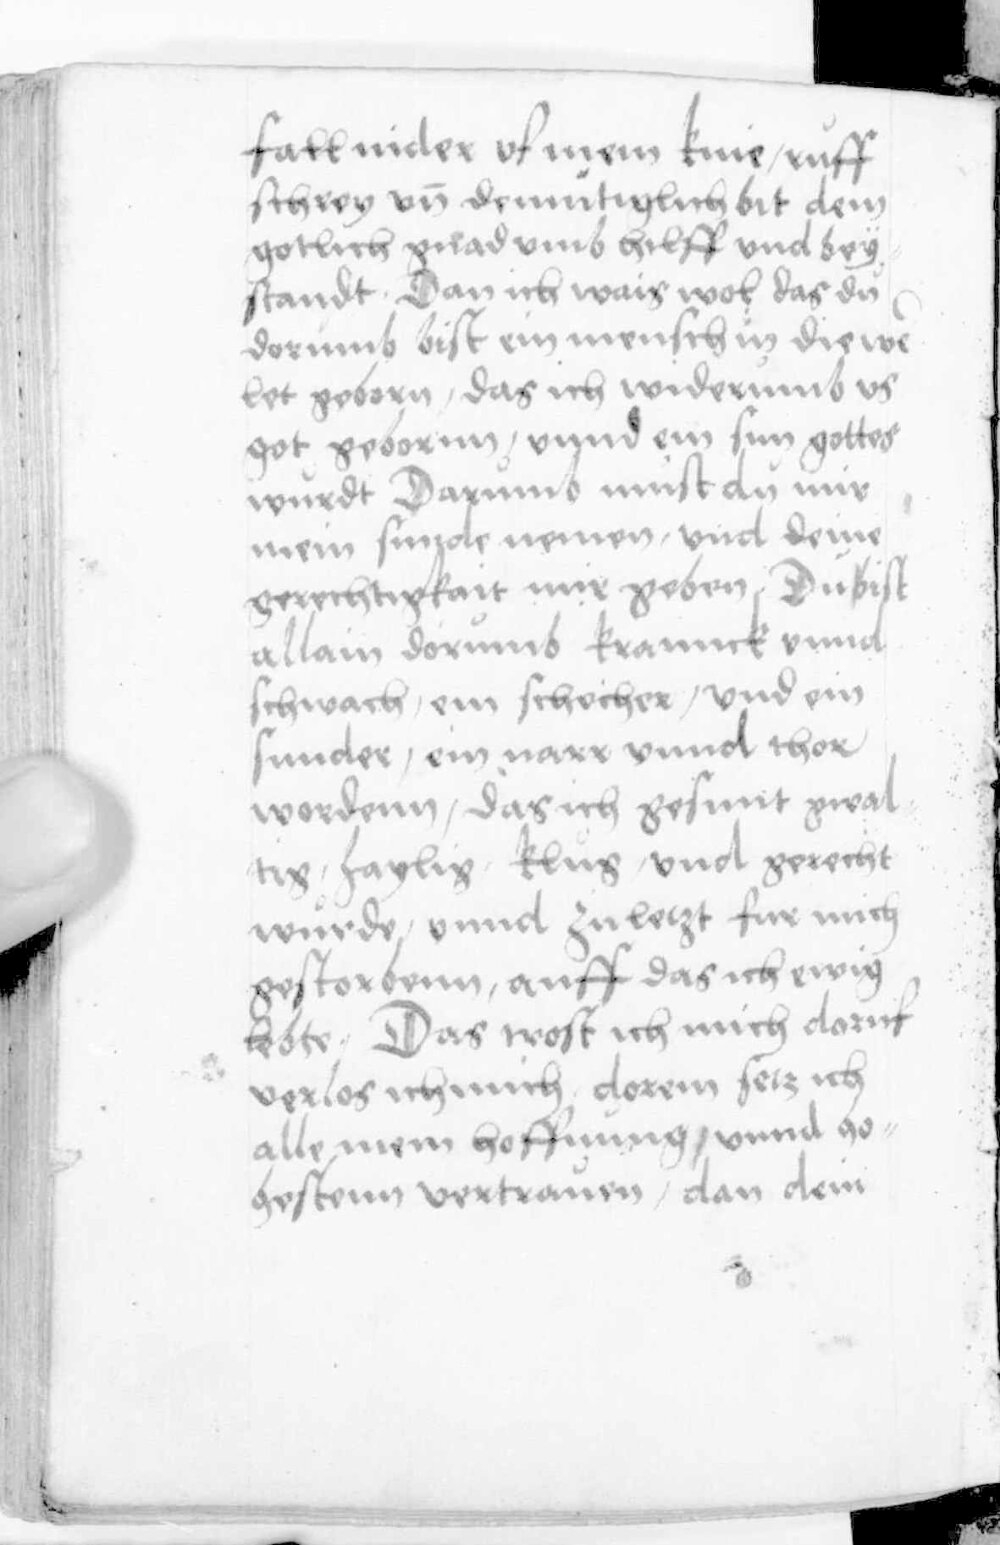 fall nider vf mein knie / ruff
schrey vn̄ demutiglich bit dein
gotlich gnad vmb hilff vnd bey
standt. Dan ich wais wol das dů
dorumb bist ein mensch in die we
let geborn / das ich widerumb vs
got geborenn / vnnd ein sun gottes
wurdt Darumb must du mir
mein sunde nemen / vnd deine
gerechtigkait mir geben / Du bist
allain dorumb krannck vnnd
schwach / ein schecher / vnd ein
sunder / ein narr vnnd thor
wordenn / das ich gesunt gwal
tig / haylig / klug / vnd gerecht
wurde / vnnd zuletzt fur mich
gestorbenn / auff das ich ewig
lebte / Das trost ich mich doruf
verlos ich mich / dorein setz ich
alle mein hoffnung / vnnd ho-
hestenn vertrauen / dan dein